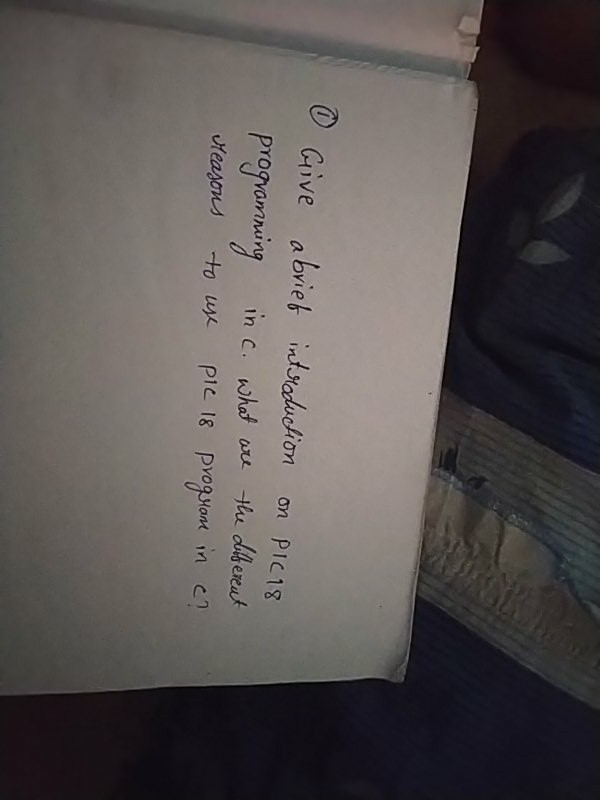 ① Give a brief introduction on PIC18
programming in c. what are the different
reasons to use PIC 18 program in c?